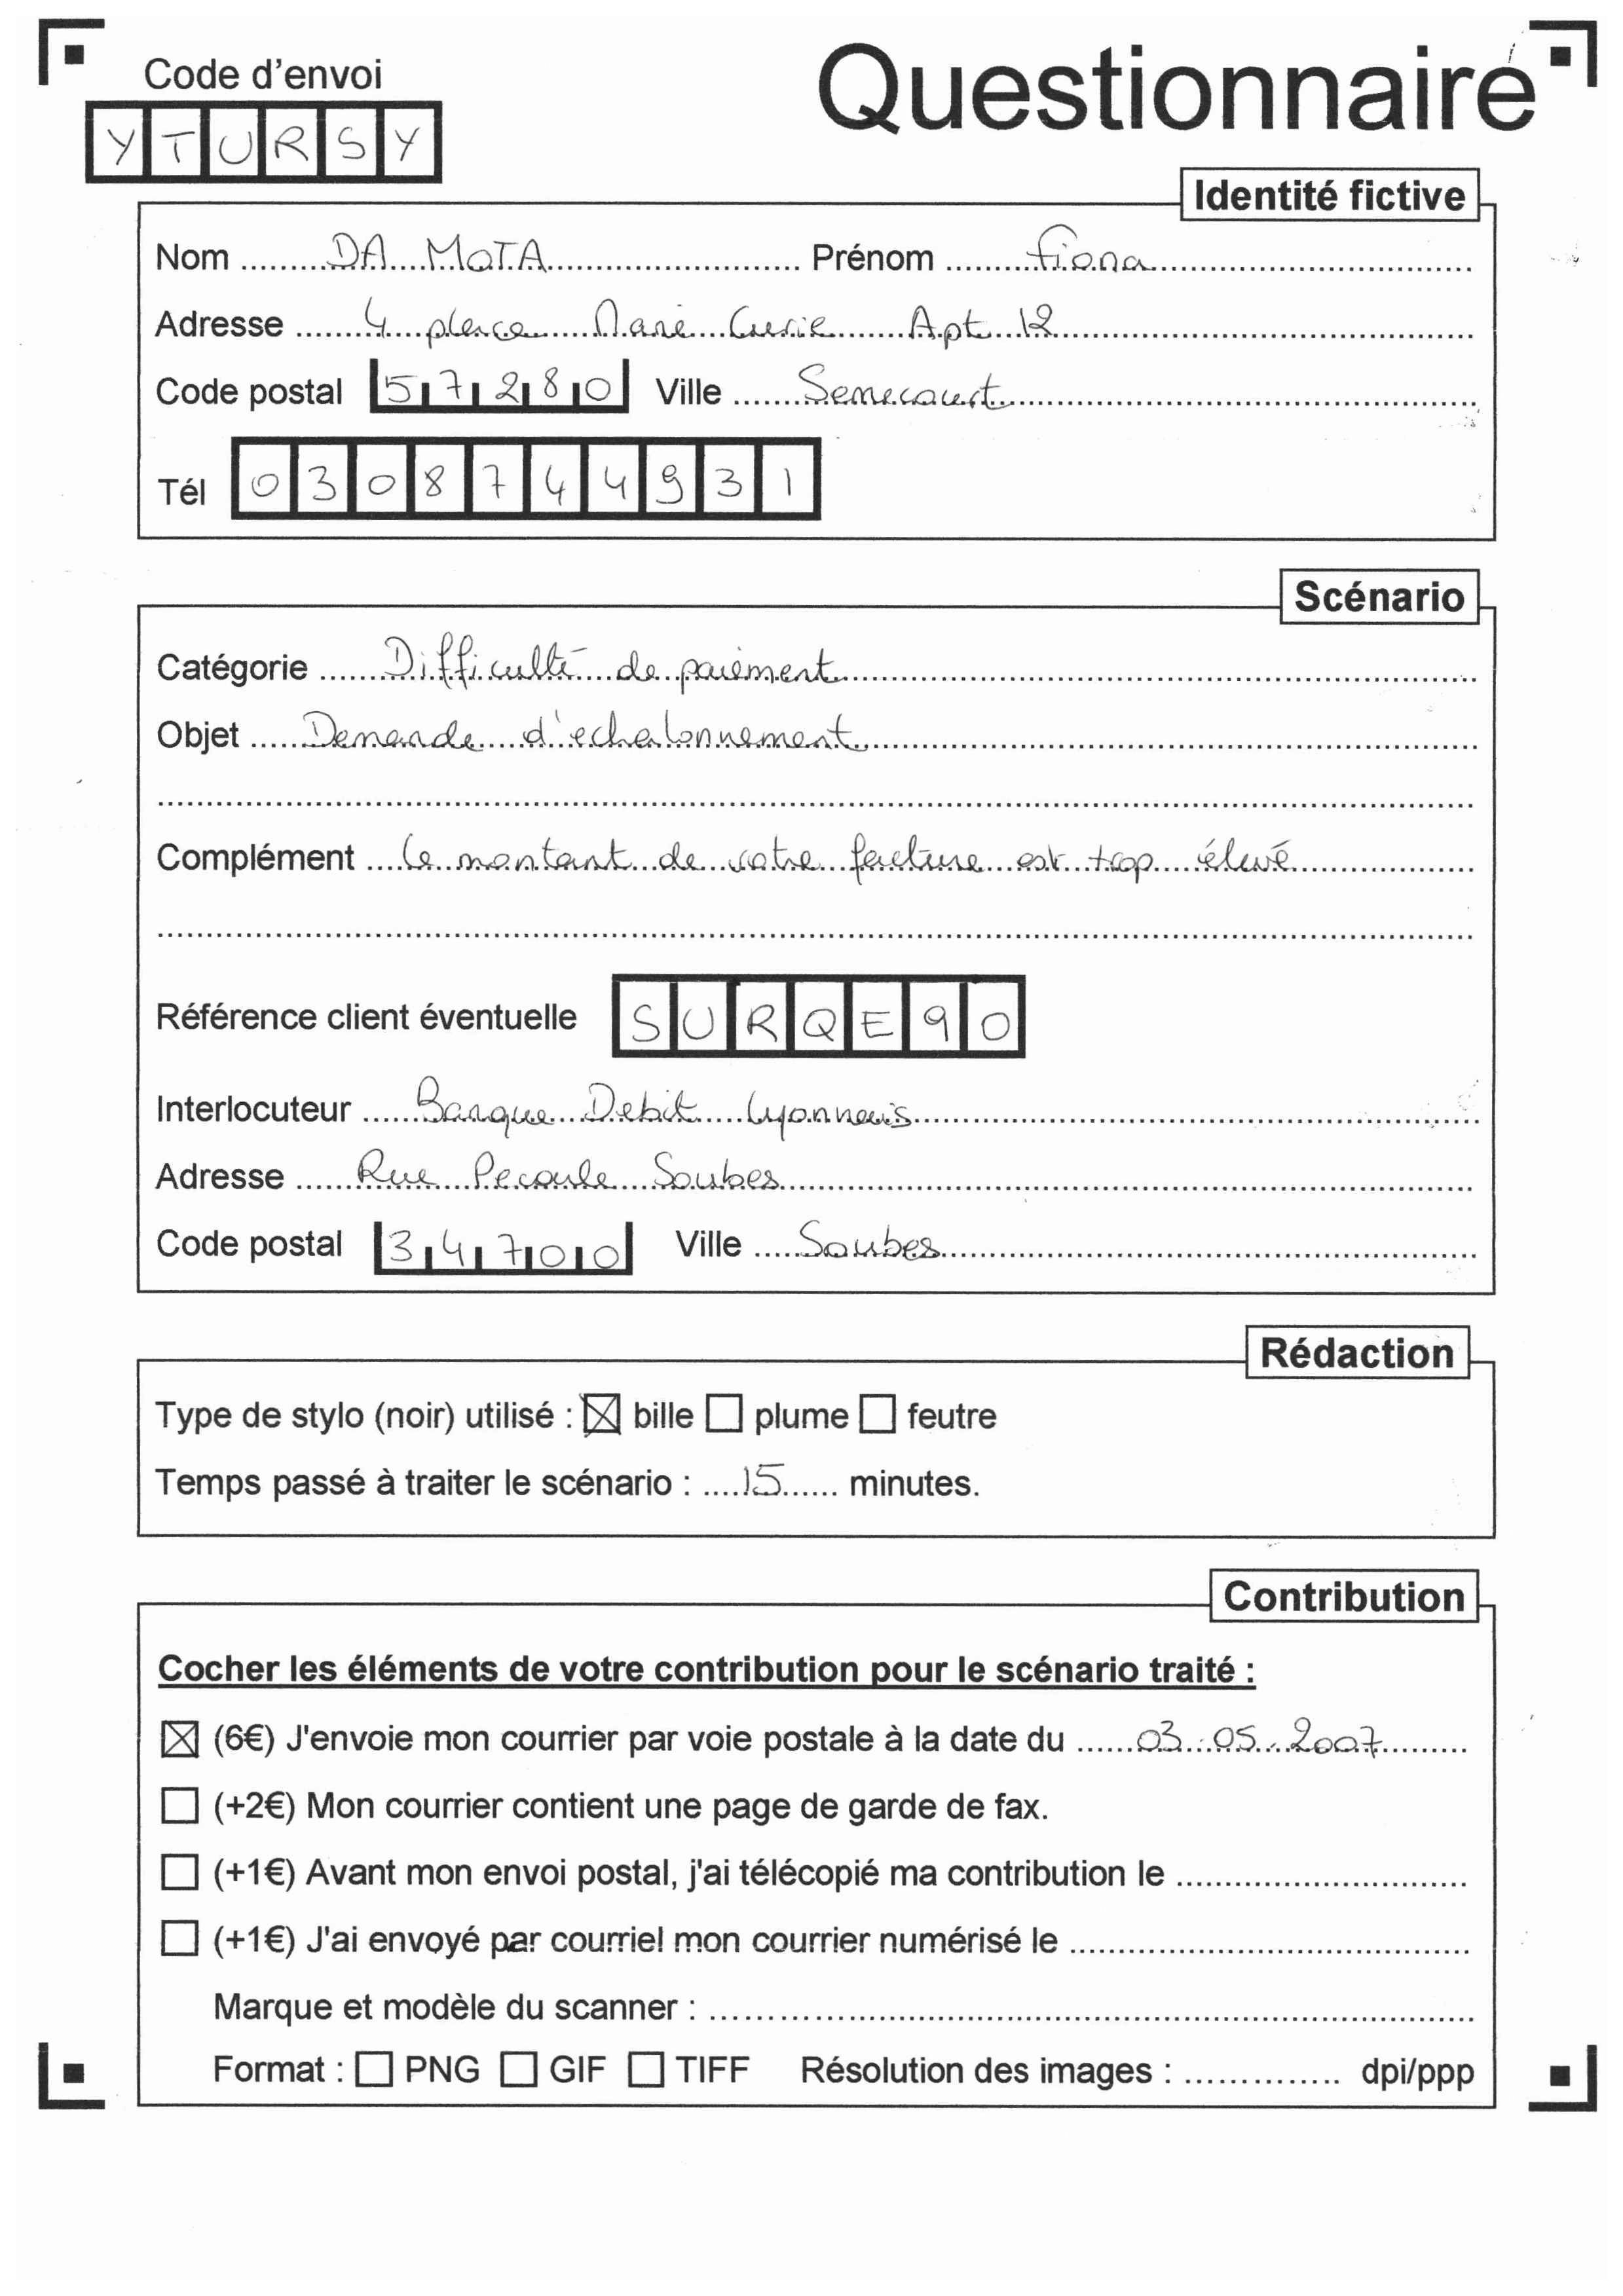 Code d'envoi
Questionnaire
YTURSY
Identité fictive
Nom DA MOTA Prénom Fiona
Adresse 4 place Marie Curie Apt 12
Code postal 57280 Ville Semecourt
Tél 0308744931
Scénario
Catégorie Difficulté de paiement
Objet Demande d'echelonnement
Complément Le montant de votre facture est trop élevé
Référence client éventuelle SURQE90
Interlocuteur Banque Debit Lyonnais
Adresse Rue Pecoule Soubes
Code postal 34700 Ville Soubes
Rédaction
Type de stylo (noir) utilisé : ☒ bille ☐ plume ☐ feutre
Temps passé à traiter le scénario : 15 minutes.
Contribution
Cocher les éléments de votre contribution pour le scénario traité :
☒ (6€) J'envoie mon courrier par voie postale à la date du 03.05.2007
☐ (+2€) Mon courrier contient une page de garde de fax.
☐ (+1€) Avant mon envoi postal, j'ai télécopié ma contribution le
☐ (+1€) J'ai envoyé par courriel mon courrier numérisé le
Marque et modèle du scanner :
Format : ☐ PNG ☐ GIF ☐ TIFF Résolution des images : dpi/ppp